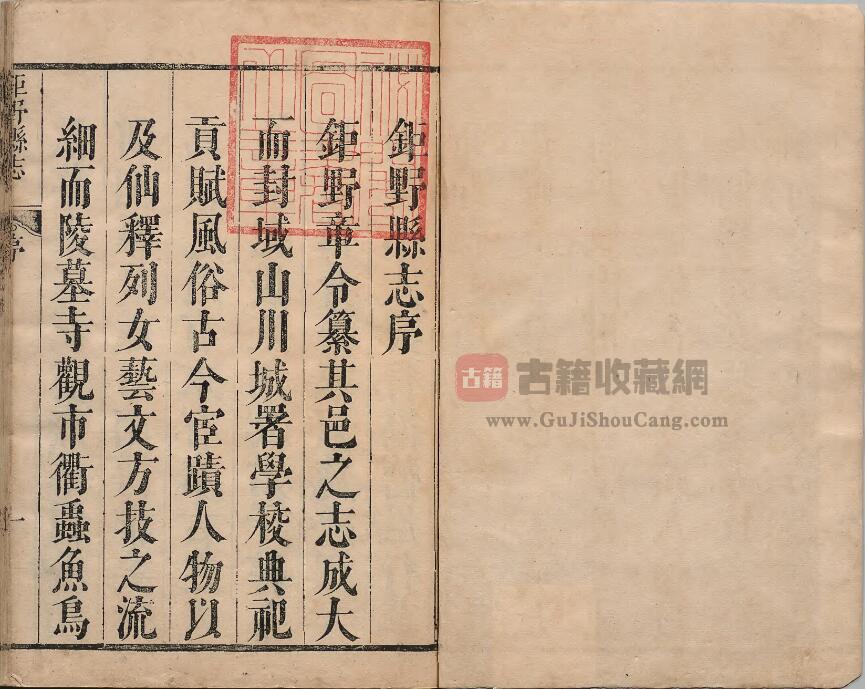 鉅野縣志序
鉅野章令纂其邑之志成大
而封域山川城署學校典祀
貢賦風俗古今宦蹟人物以
及仙釋列女藝文方技之流
細而陵墓寺觀市衢蟲魚鳥
鉅野縣志
序
一
古籍
古籍收藏網
www.GuJiShouCang.com